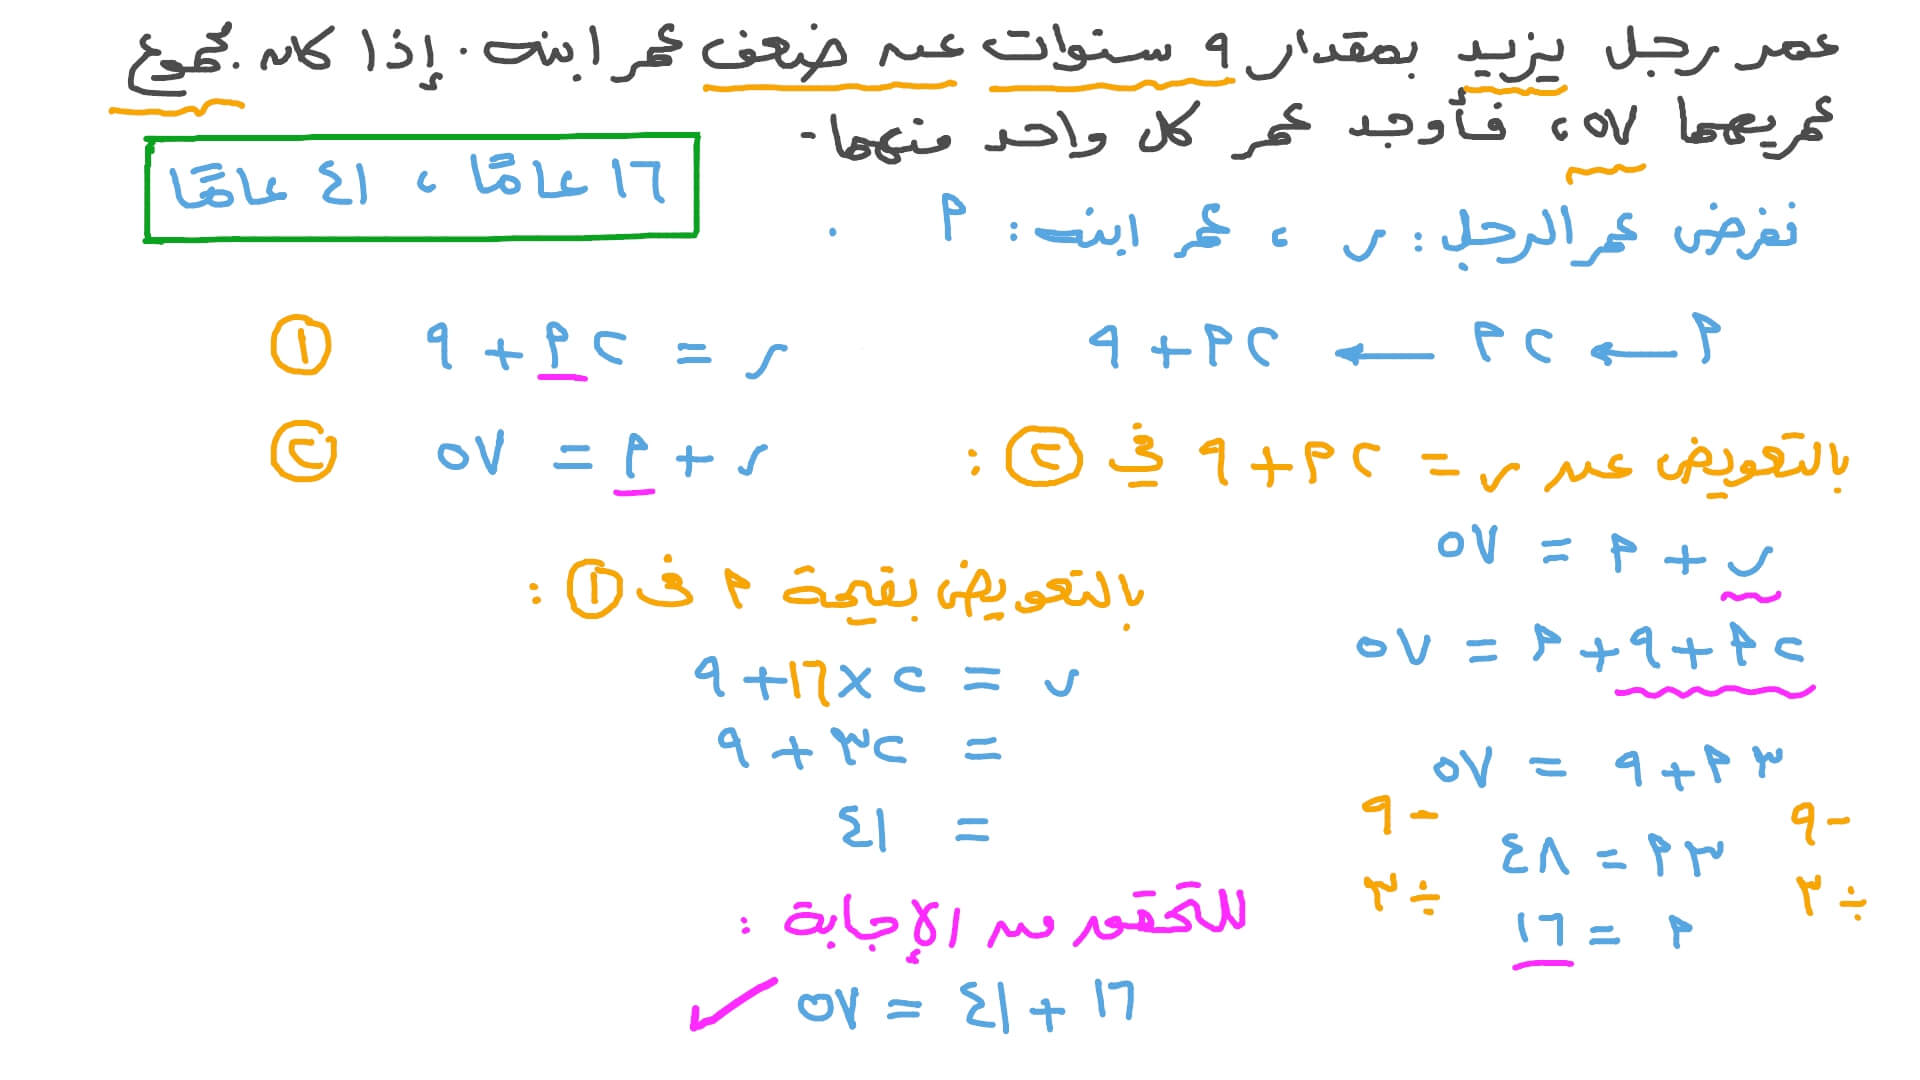 عمر رجل يزيد بمقدار ٩ سنوات عن ضعف عمر ابنه. إذا كان مجموع
عمريهما ٥٧، فأوجد عمر كل واحد منهما.
١٦ عامًا ، ٤١ عامًا
نفرض عمر الرجل: ر ، عمر ابنه: م .
م ← ٢م ← ٢م + ٩
ر = ٢م + ٩ ①
ر + م = ٥٧ ②
بالتعويض عن ر = ٢م + ٩ في ② :
ر + م = ٥٧
٢م + ٩ + م = ٥٧
٣م + ٩ = ٥٧
-٩ -٩
٣م = ٤٨
÷٣ ÷٣
م = ١٦
بالتعويض بقيمة م في ① :
ر = ٢ × ١٦ + ٩
= ٣٢ + ٩
= ٤١
للتحقق من الإجابة :
١٦ + ٤١ = ٥٧ ✓